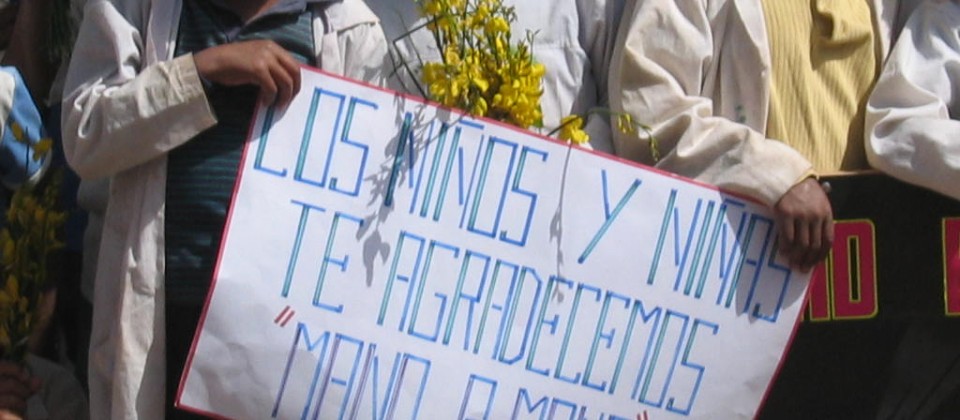 LOS NIÑOS Y NIÑAS
TE AGRADECEMOS
"MANO A MANO"